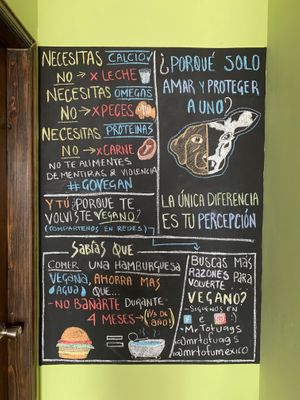 NECESITAS CALCIO
NO → X LECHE
NECESITAS OMEGAS
NO → X PECES
NECESITAS PROTEINAS
NO → X CARNE
NO TE ALIMENTES
DE MENTIRAS & VIOLENCIA
#GOVEGAN
Y TÚ ¿PORQUE TE
VOLVISTE VEGANO?
(COMPARTENOS EN REDES)
¿PORQUÉ SOLO
AMAR Y PROTEGER
A UNO?
LA ÚNICA DIFERENCIA
ES TU PERCEPCIÓN
SABÍAS QUE
COMER UNA HAMBURGUESA
VEGANA, AHORRA MAS
AGUA QUE...
-NO BAÑARTE DURANTE-
4 MESES → (1/3 DE AÑO!)
=
BUSCAS MAS
RAZONES PARA
VOLVERTE
VEGANO?
-SIGUENOS EN
f e
Mr Tofu ags
@mrtofuags
@mrtofumexico